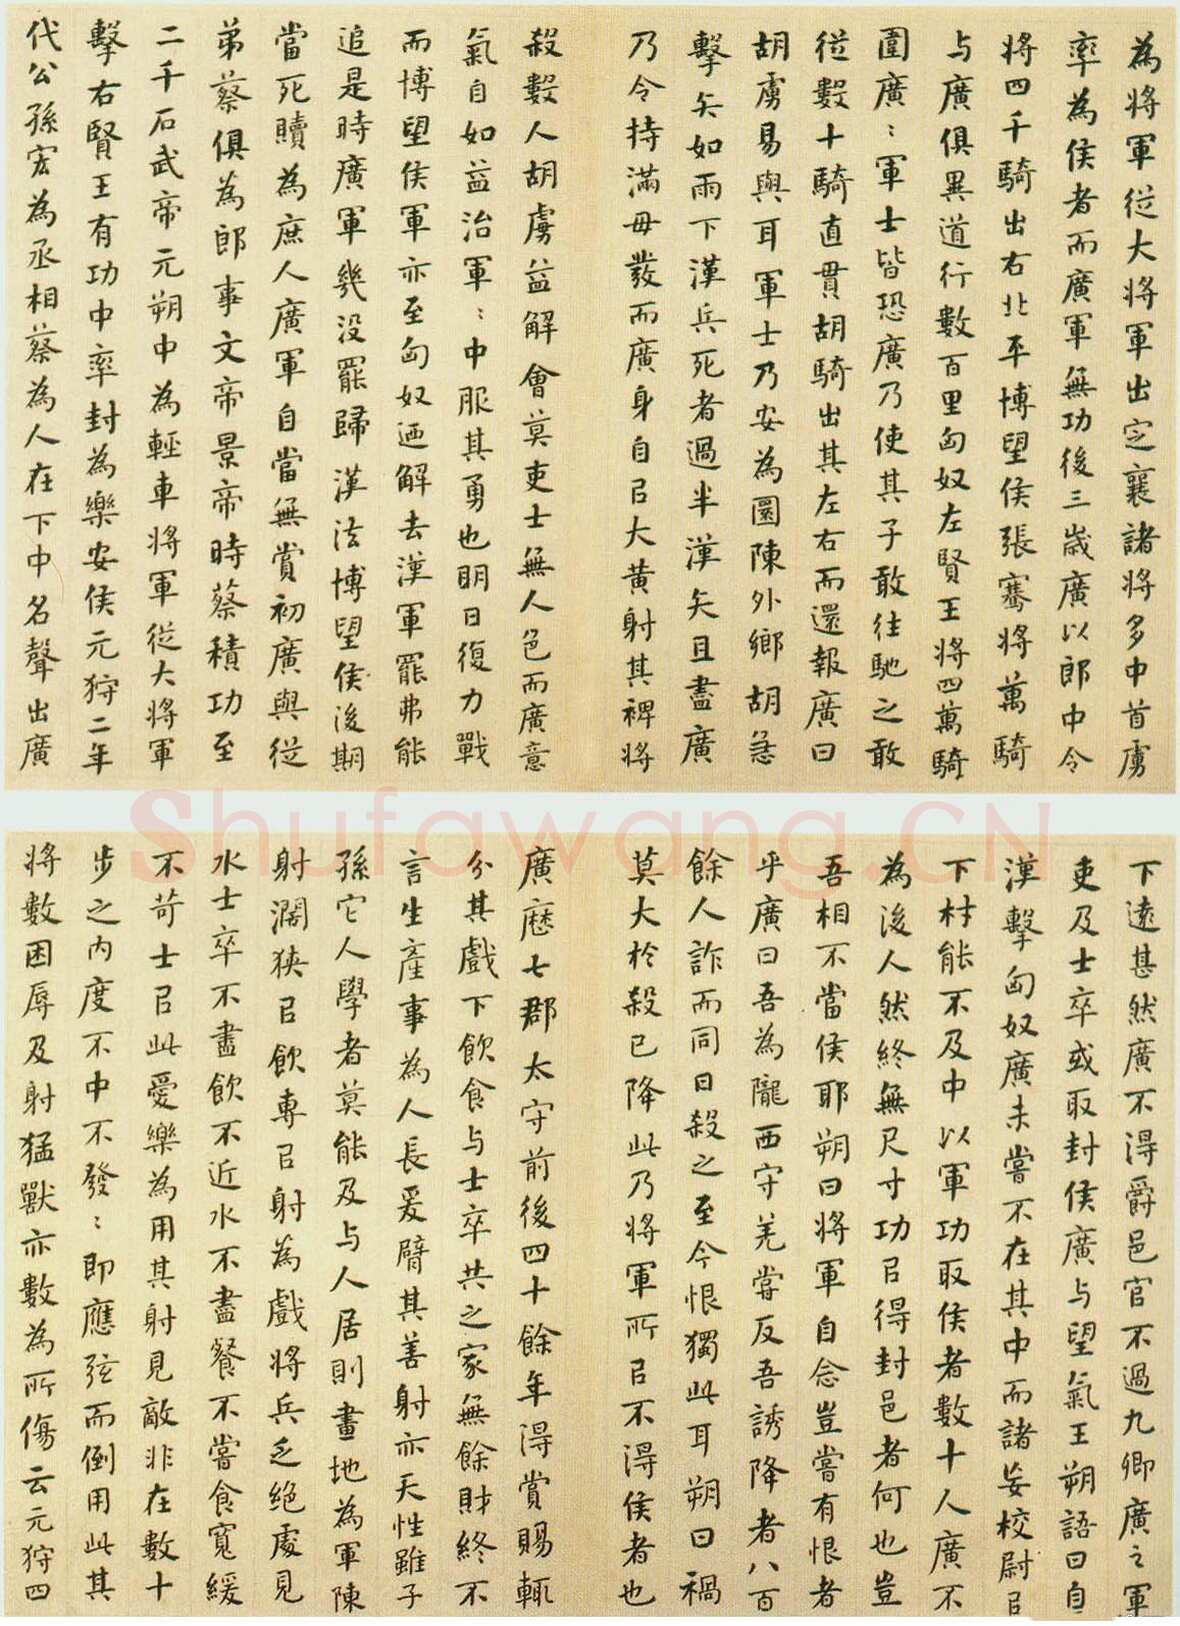 為將軍從大將軍出定襄諸將多中首虜
率為侯者而廣軍無功後三歲廣以郎中令
將四千騎出右北平博望侯張騫將萬騎
与廣俱異道行數百里匈奴左賢王將四萬騎
圍廣〻軍士皆恐廣乃使其子敢往馳之敢
從數十騎直貫胡騎出其左右而還報廣曰
胡虜易與耳軍士乃安為圜陳外鄉胡急
擊矢如雨下漢兵死者過半漢矢且盡廣
乃令持滿毋發而廣身自㠯大黃射其裨將
殺數人胡虜益解會莫吏士無人色而廣意
氣自如益治軍〻中服其勇也明日復力戰
而博望侯軍亦至匈奴迺解去漢軍罷弗能
追是時廣軍幾沒罷歸漢法博望侯後期
當死贖為庶人廣軍自當無賞初廣與從
弟蔡俱為郎事文帝景帝時蔡積功至
二千石武帝元朔中為輕車將軍從大將軍
擊右賢王有功中率封為樂安侯元狩二年
代公孫宏為丞相蔡為人在下中名聲出廣
Shufawang.CN
下遠甚然廣不得爵邑官不過九卿廣之軍
吏及士卒或取封侯廣与望氣王朔語曰自
漢擊匈奴廣未嘗不在其中而諸妄校尉㠯
下材能不及中以軍功取侯者數十人廣不
為後人然終無尺寸功㠯得封邑者何也豈
吾相不當侯耶朔曰將軍自念豈嘗有恨者
乎廣曰吾為隴西守羌嘗反吾誘降者八百
餘人詐而同日殺之至今恨獨此耳朔曰禍
莫大於殺已降此乃將軍所㠯不得侯者也
廣歷七郡太守前後四十餘年得賞賜輒
分其戲下飲食与士卒共之家無餘財終不
言生產事為人長爰臂其善射亦天性雖子
孫它人學者莫能及与人居則畫地為軍陳
射濶狹㠯飲專㠯射為戲將兵乏絕處見
水士卒不盡飲不近水不盡餐不嘗食寬緩
不苛士㠯此愛樂為用其射見敵非在數十
步之內度不中不發〻即應弦而倒用此其
將數困辱及射猛獸亦數為所傷云元狩四